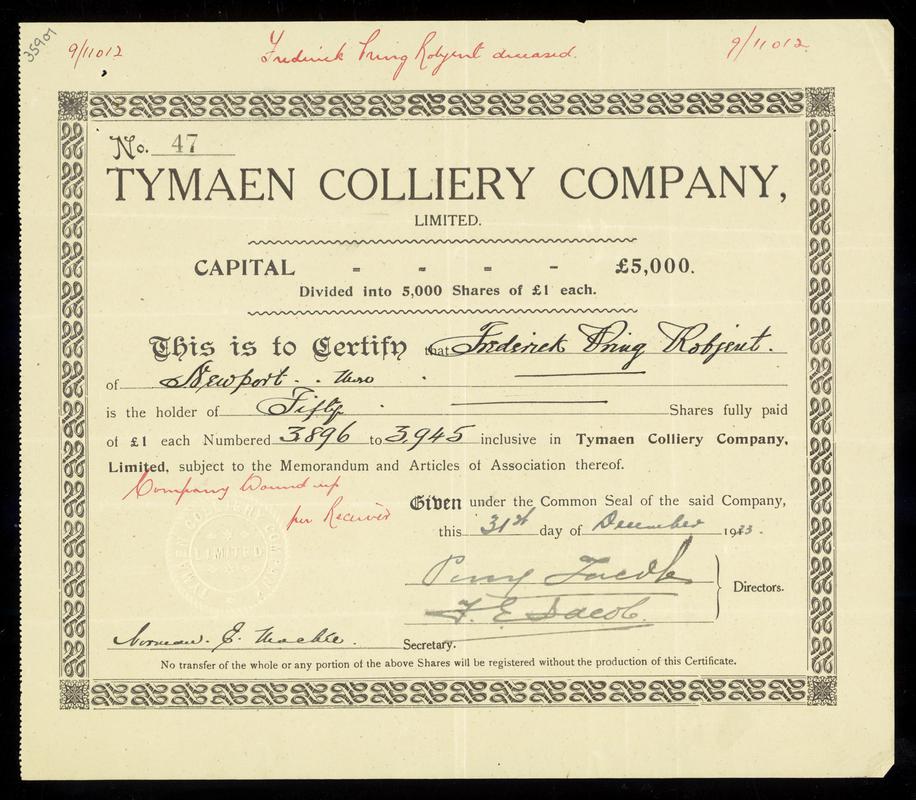 35901
9/11012
Frederick Pring Robjent deceased.
9/11012
No. 47
TYMAEN COLLIERY COMPANY,
LIMITED.
CAPITAL - - - - £5,000.
Divided into 5,000 Shares of £1 each.
This is to Certify that Frederick Pring Robjent.
of Newport. Mon
is the holder of Fifty Shares fully paid
of £1 each Numbered 3896 to 3,945 inclusive in Tymaen Colliery Company,
Limited, subject to the Memorandum and Articles of Association thereof.
Company Wound up
per Receiver
Given under the Common Seal of the said Company,
this 31st day of December 1923.
TYMAEN COLLIERY COMPANY
LIMITED
Percy Jacob
F. E. Jacob.
Directors.
Norman. E.
Secretary.
No transfer of the whole or any portion of the above Shares will be registered without the production of this Certificate.